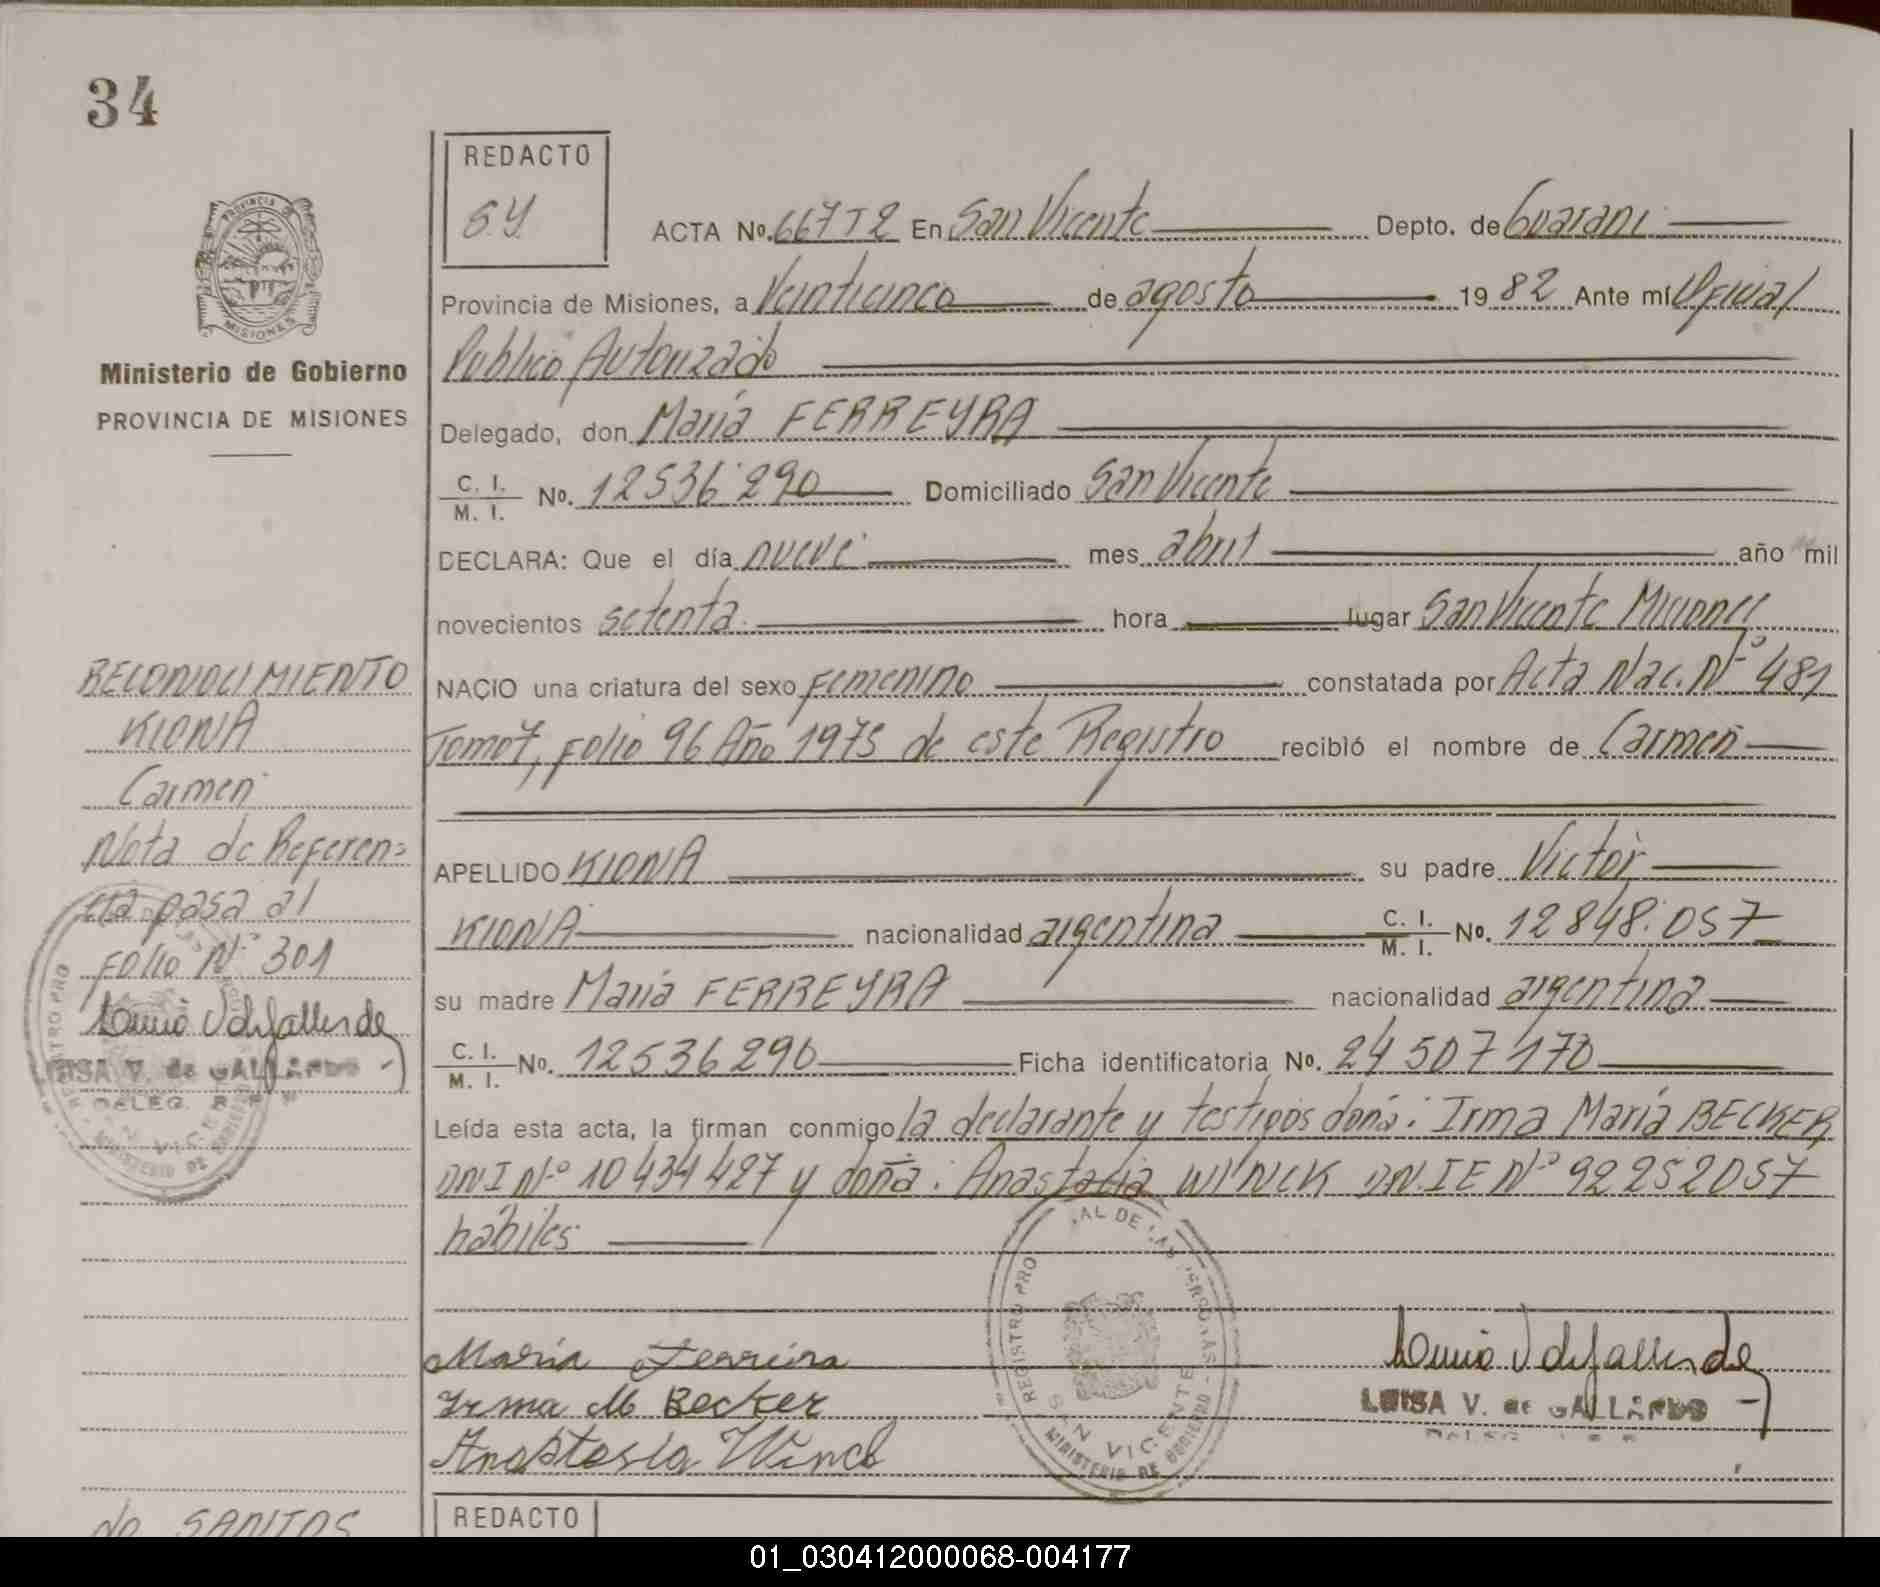 34
REDACTO
S.Y.
ACTA No. 667 T 2 En San Vicente Depto. de Guarani
Provincia de Misiones, a Veinticinco de agosto 1982 Ante mí Oficial
Publico Autorizado
Delegado, don María FERREYRA
C. I.
M. I. No. 12536290 Domiciliado San Vicente
DECLARA: Que el día nueve mes abril año mil
novecientos setenta hora lugar San Vicente Misiones
NACIO una criatura del sexo Femenino constatada por Acta Nac. Nº 481
Tomo 7, Folio 96 Año 1975 de este Registro recibió el nombre de Carmen
APELLIDO KIONA su padre Victor
KIONA nacionalidad argentina C. I. M. I. No. 12848.057
su madre María FERREYRA nacionalidad argentina
C. I.
M. I. No. 12536290 Ficha identificatoria No. 24507170
Leída esta acta, la firman conmigo la declarante y testigos doña: Irma María BECKER
DNI Nº 10434427 y doña: Anastacia WINCK DN.IE Nº 92252057
hábiles
María Ferreira
Irma M Becker
Anastasia Winck
LUISA V. de GALLARDO
REGISTRO PRO AL DE LAS PERSONAS
SAN VICENTE
MINISTERIO DE GOBIERNO
PROVINCIA
MISIONES
Ministerio de Gobierno
PROVINCIA DE MISIONES
RECONOCIMIENTO
KIONA
Carmen
Nota de Referen=
cia pasa al
Folio Nº 301
LUISA V. de GALLARDO
DELEG.
SAN VICENTE
MINISTERIO DE GOBIERNO
do SANTOS
REDACTO
01_030412000068-004177